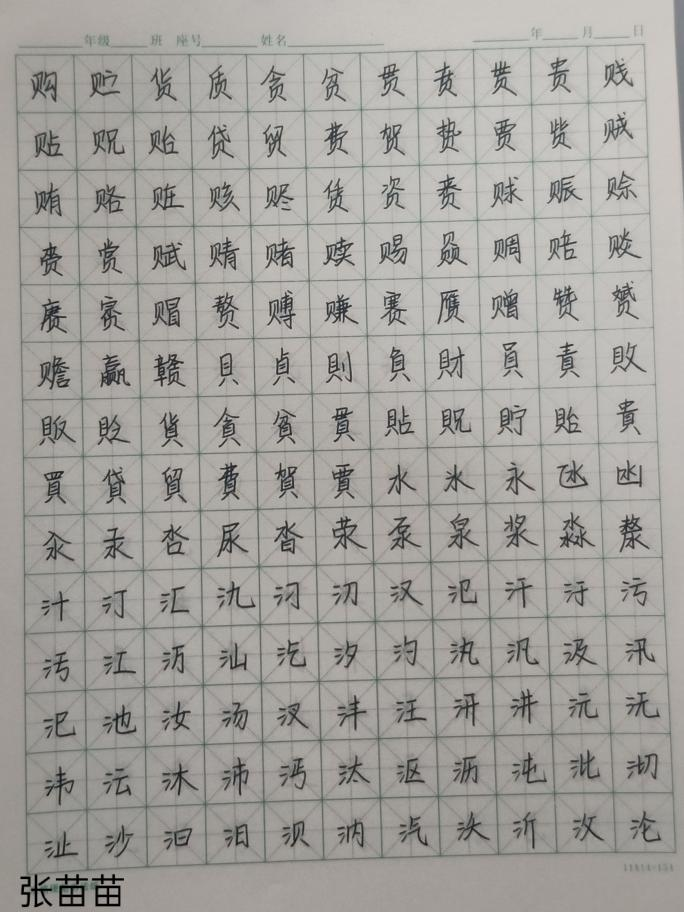 年级 班 座号 姓名 年 月 日
购 贮 货 质 贪 贫 贯 贲 贳 贵 贱
贴 贶 贻 贷 贸 费 贺 贽 贾 赀 贼
贿 赂 赃 赅 赆 赁 资 赉 赇 赈 赊
赍 赏 赋 赌 赎 赐 赑 赒 赔 赕
赓 赉 赗 赘 赙 赚 赛 赝 赠 赞 赟
赡 赢 赣 貝 貞 則 負 財 員 責 敗
販 貶 貨 貪 貧 貫 貼 貺 貯 貽 貴
買 貸 貿 費 賀 賈 水 氷 永 氹 凼
汆 汞 沓 尿 沯 荥 泵 泉 浆 淼 漦
汁 汀 汇 氿 汈 汉 氾 汗 汙 污
汚 江 沥 汕 汔 汐 汋 汍 汎 汲 汛
汜 池 汝 汤 汊 沣 汪 汧 汫 沅 沆
沩 沄 沐 沛 沔 汰 沤 沥 沌 沘 沏
沚 沙 汩 汨 沨 汭 汽 沃 沂 汶 沦
张苗苗